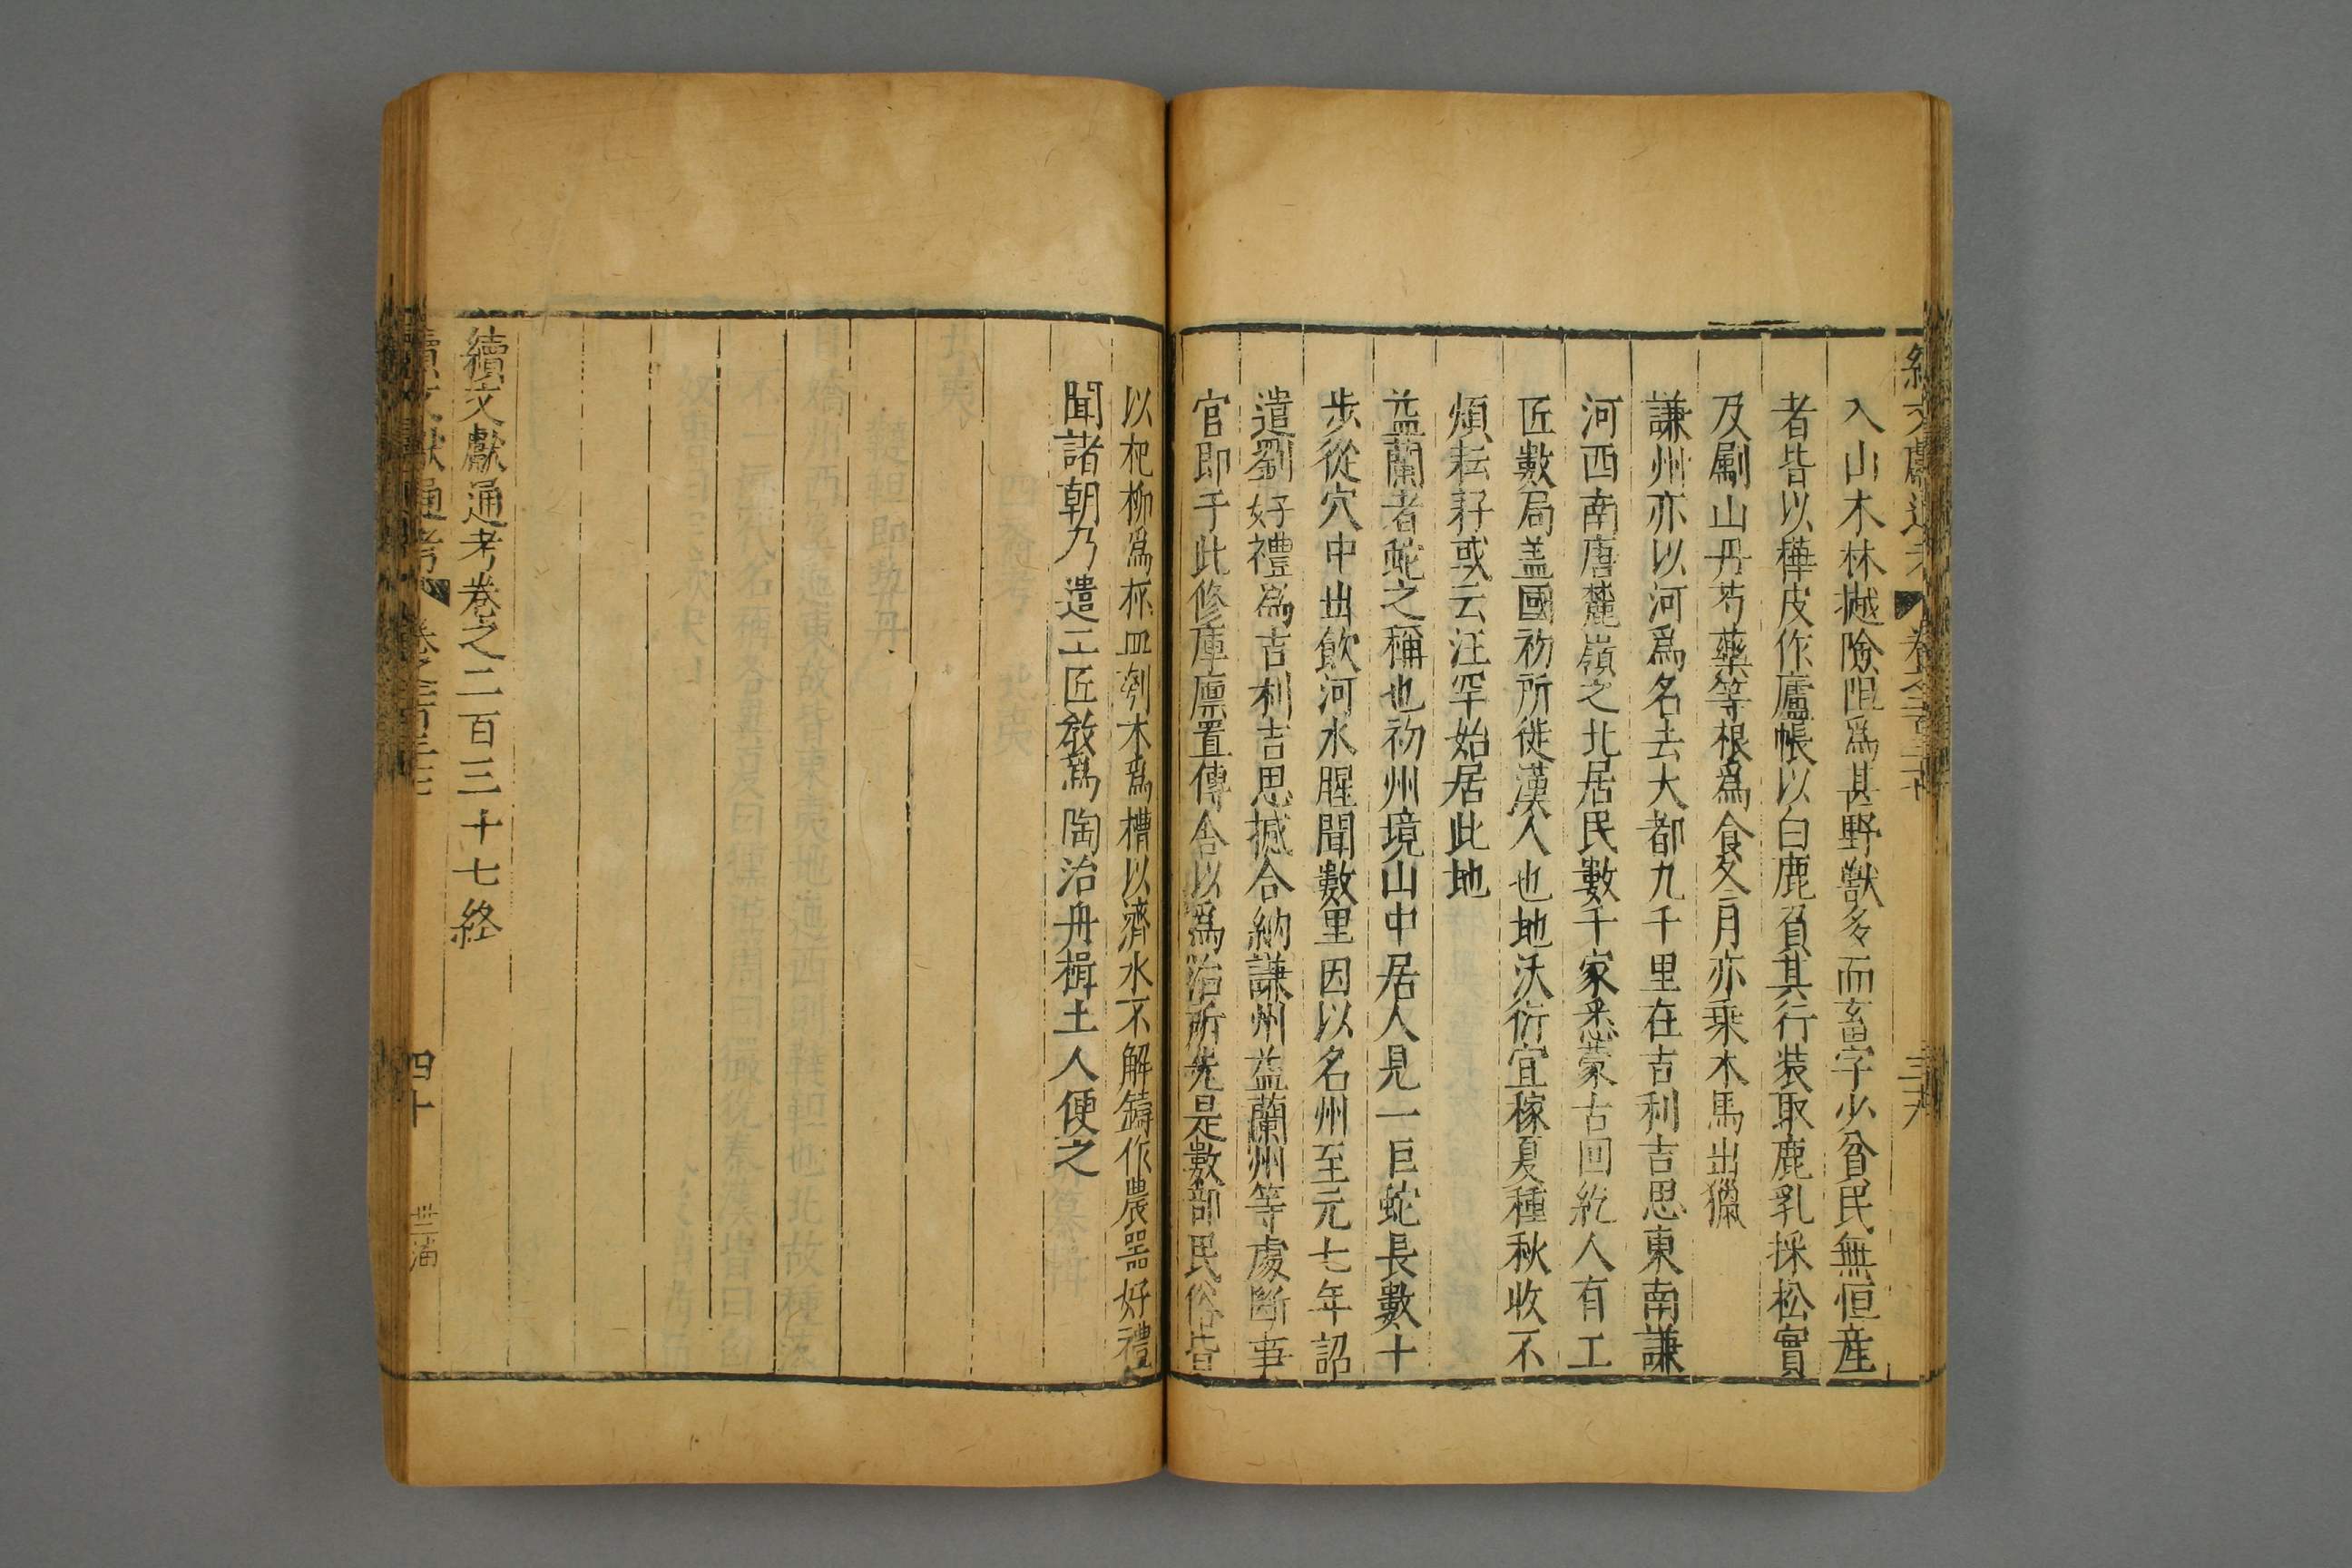 入山木林樾險阻爲甚野獸多而畜字少貧民無恒産
者皆以樺皮作廬帳以白鹿負其行装取鹿乳採松實
及劚山丹芍藥等根爲食冬月亦乗木馬出獵
謙州亦以河爲名去大都九千里在吉利吉思東南謙
河西南唐麓嶺之北居民數千家悉蒙古回紇人有工
匠數局盖國初所徙漢人也地沃衍宜稼夏種秋收不
煩耘耔或云汪罕始居此地
益蘭者蛇之稱也初州境山中居人見一巨蛇長數十
步從穴中出飲河水腥聞數里因以名州至元七年詔
遣劉好禮爲吉利吉思撼合納謙州益蘭州等處斷事
官即于此修庫廪置傳舍以爲治所先是數部民俗皆
以杞柳爲杯皿刳木爲槽以濟水不解鑄作農器好禮
聞諸朝乃遣工匠敎爲陶冶舟楫土人便之
續文獻通考卷之二百三十七終
續文獻通考 卷之二百三十七 四十